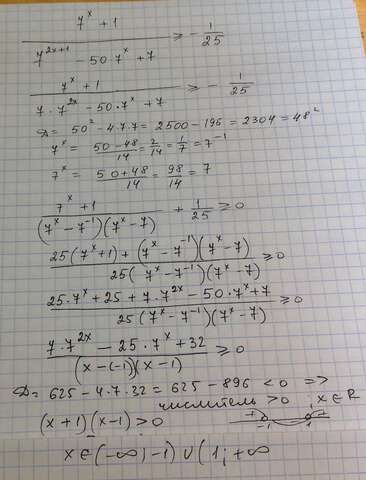 7^x + 1 / 7^(2x+1) - 50·7^x + 7 ≥ - 1/25
7^x + 1 / 7·7^(2x) - 50·7^x + 7 ≥ - 1/25
D = 50² - 4·7·7 = 2500 - 196 = 2304 = 48²
7^x = 50-48/14 = 2/14 = 1/7 = 7^(-1)
7^x = 50+48/14 = 98/14 = 7
7^x + 1 / (7^x - 7^(-1))(7^x - 7) + 1/25 ≥ 0
25(7^x+1) + (7^x - 7^(-1))(7^x - 7) / 25(7^x - 7^(-1))(7^x - 7) ≥ 0
25·7^x + 25 + 7·7^(2x) - 50·7^x + 7 / 25(7^x - 7^(-1))(7^x - 7) ≥ 0
7·7^(2x) - 25·7^x + 32 / (x - (-1))(x - 1) ≥ 0
D = 625 - 4·7·32 = 625 - 896 < 0 =>
числитель > 0, x ∈ R
(x+1)(x-1) > 0
+ -1 - 1 +
x ∈ (-∞; -1) ∪ (1; +∞